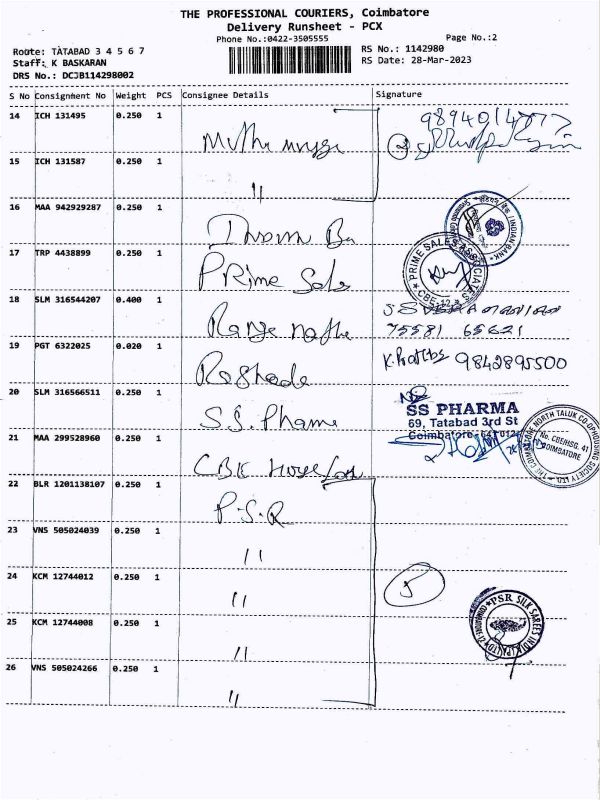 THE PROFESSIONAL COURIERS, Coimbatore
Delivery Runsheet - PCX
Phone No.:0422-3505555
Page No.:2
Route: TATABAD 3 4 5 6 7
RS No.: 1142980
Staff: K BASKARAN
RS Date: 28-Mar-2023
DRS No.: DCJB114298002
S No Consignment No Weight PCS Consignee Details Signature
14 ICH 131495 0.250 1
15 ICH 131587 0.250 1 "
16 MAA 942929287 0.250 1
INDIAN BANK
17 TRP 4438899 0.250 1 Prime Sale
PRIME SALES ASSOCIATES CBE-12
18 SLM 316544207 0.400 1
75581 65621
19 PGT 6322025 0.020 1
9842895500
20 SLM 316566511 0.250 1 S.S. Phame
SS PHARMA
69, Tatabad 3rd St
Coimbatore-641012
21 MAA 299528960 0.250 1 CBE
No. CBEHSG. 41
COIMBATORE
22 BLR 1201138107 0.250 1 P.S.R
23 VNS 505024039 0.250 1 "
24 KCM 12744012 0.250 1 "
5
25 KCM 12744008 0.250 1 "
PSR SILK SAREES INDIA
26 VNS 505024266 0.250 1 "